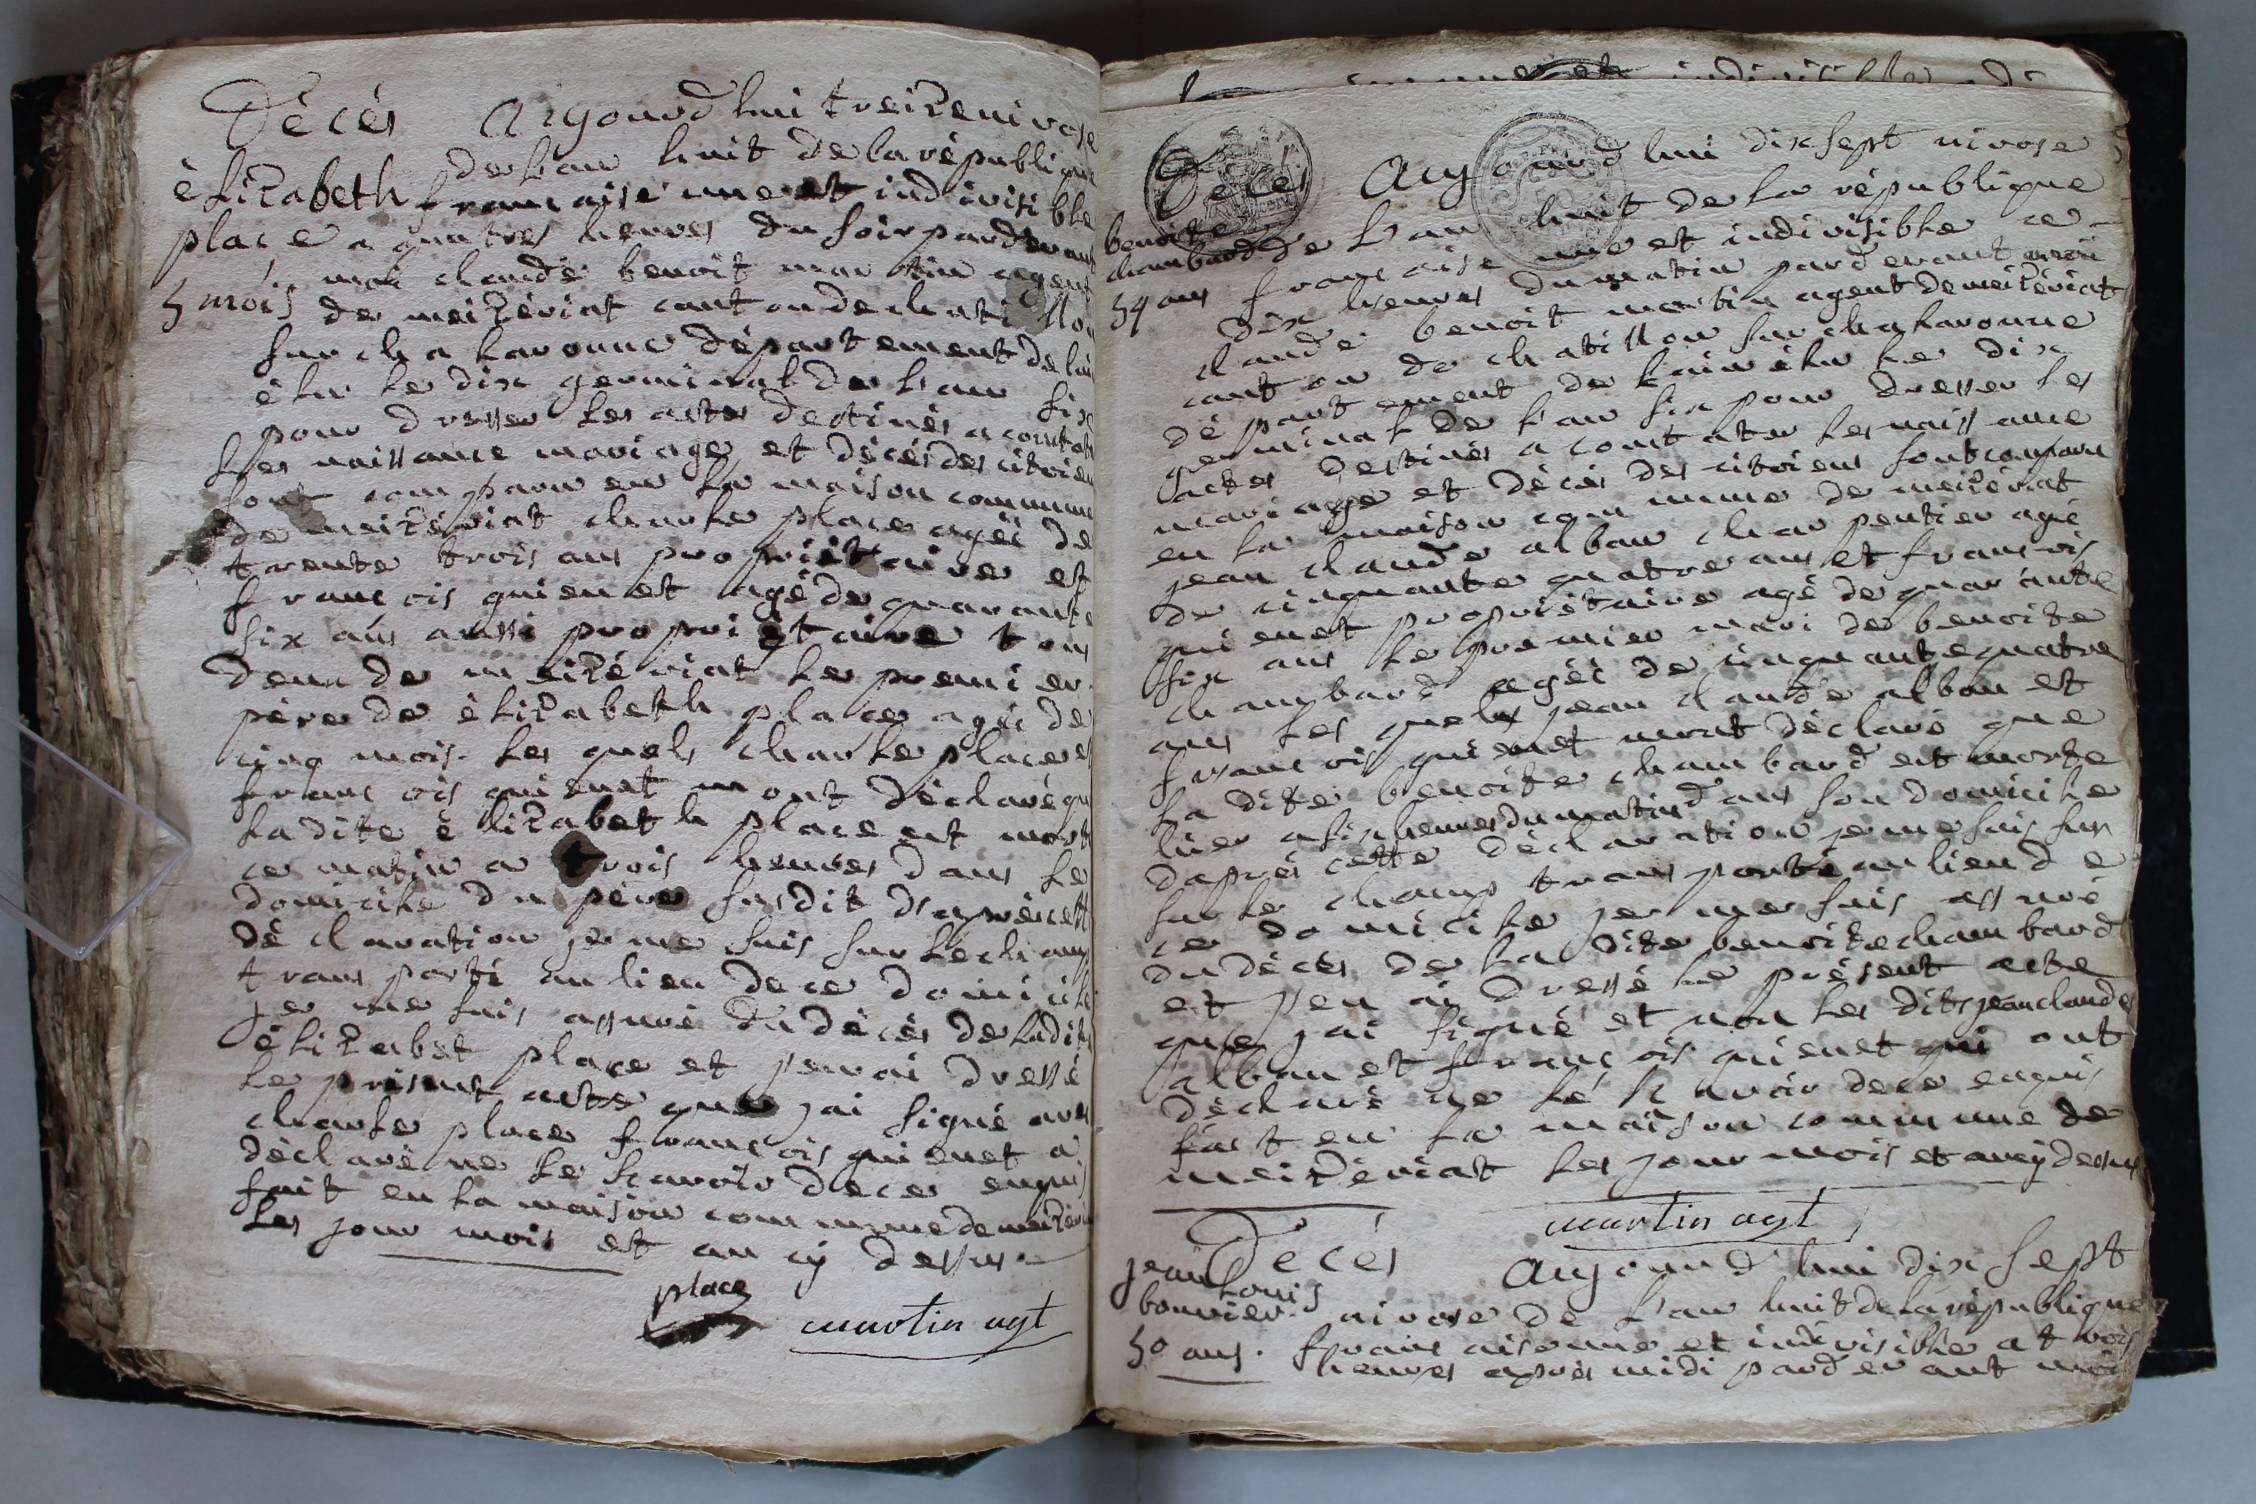 Décès Aujourd hui treize nivose
élizabeth
place
5 mois
de l'an huit de la république
francaise une et indivisible
a quatres heures du soir pardevant
moi claude benoit martin agent
de meizériat canton de chatillon
sur chalaronne département de lain
élu le dix germinal de l'an six
pour dresser les actes destinés a constater
les naissance mariage et décés des citoien
sont comparu en la maison commune
de meizériat charle place agéé de
trente trois ans propriétaire et
francois quienet agé de quarante
six ans aussi propriétaire tous
deux de meizériat le premier
père de élizabeth place agéé de
cinq mois. les quels charle place et
francois quienet mont déclaré que
ladite élizabeth place est morte
ce matin a trois heures dans le
domicile du père susdit daprès cette
déclaration je me suis sur le champ
transporté au lieu de ce domicile
je me suis assuré du décès de ladite
élizabet place et jen ai dressé
le présent acte que jai signé avec
charle place francois quienet a
déclaré ne le scavoir de ce enquis
fait en la maison commune de meizériat
les jour mois et an cy dessus.
place
martin agt
Décès Aujourd hui dix sept nivose
benoite
chambard
54 ans
de l'an huit de la république
francaise une et indivisible a
dix heures du matin pardevant moi
claude benoit martin agent de meizériat
canton de chatillon sur chalaronne
département de lain élu le dix
germinal de l'an six pour dresser les
actes destinés a constater les naissance
mariage et décès des citoiens sont comparu
en la maison commune de meizériat
jean claude alban charpentier agé
de cinquante quatre ans et francois
quienet propriétaire agé de quarante
six ans le premier mari de benoite
chambard agéé de cinquante quatre
ans les quels jean claude alban et
francois quienet mont déclaré que
la dite benoite chambard est morte
hier a six heures du matin dans son domicile
daprés cette déclaration je me suis sur
sur le champ transporté au lieu de
ce domicile je me suis assuré
du décès de la dite benoite chambard
et jen ai dressé le présent acte
que jai signé et non les dits jean claude
alban et francois quienet qui ont
déclaré ne le scavoir de ce enquis
fait en la maison commune de
meizériat les jour mois et an cy dessus
martin agt
Décès Aujourd hui dix sept
jean louis
bouvier.
50 ans.
nivose de l'an huit de la république
francaise une et indivisible a trois
heures après midi pardevant moi